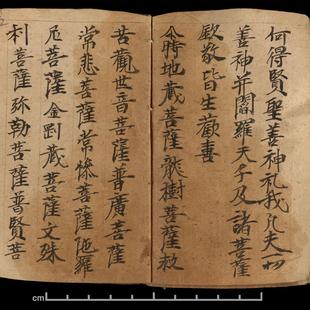 何得賢聖善神礼我凡夫一切
善神并閻羅天子及諸菩薩
欽敬皆生歡喜
尒時地蔵菩薩龍樹菩薩救
苦觀世音菩薩普廣菩薩
常悲菩薩常慘菩薩陁羅
尼菩薩金剛蔵菩薩文殊
利菩薩弥勒菩薩普賢菩
cm